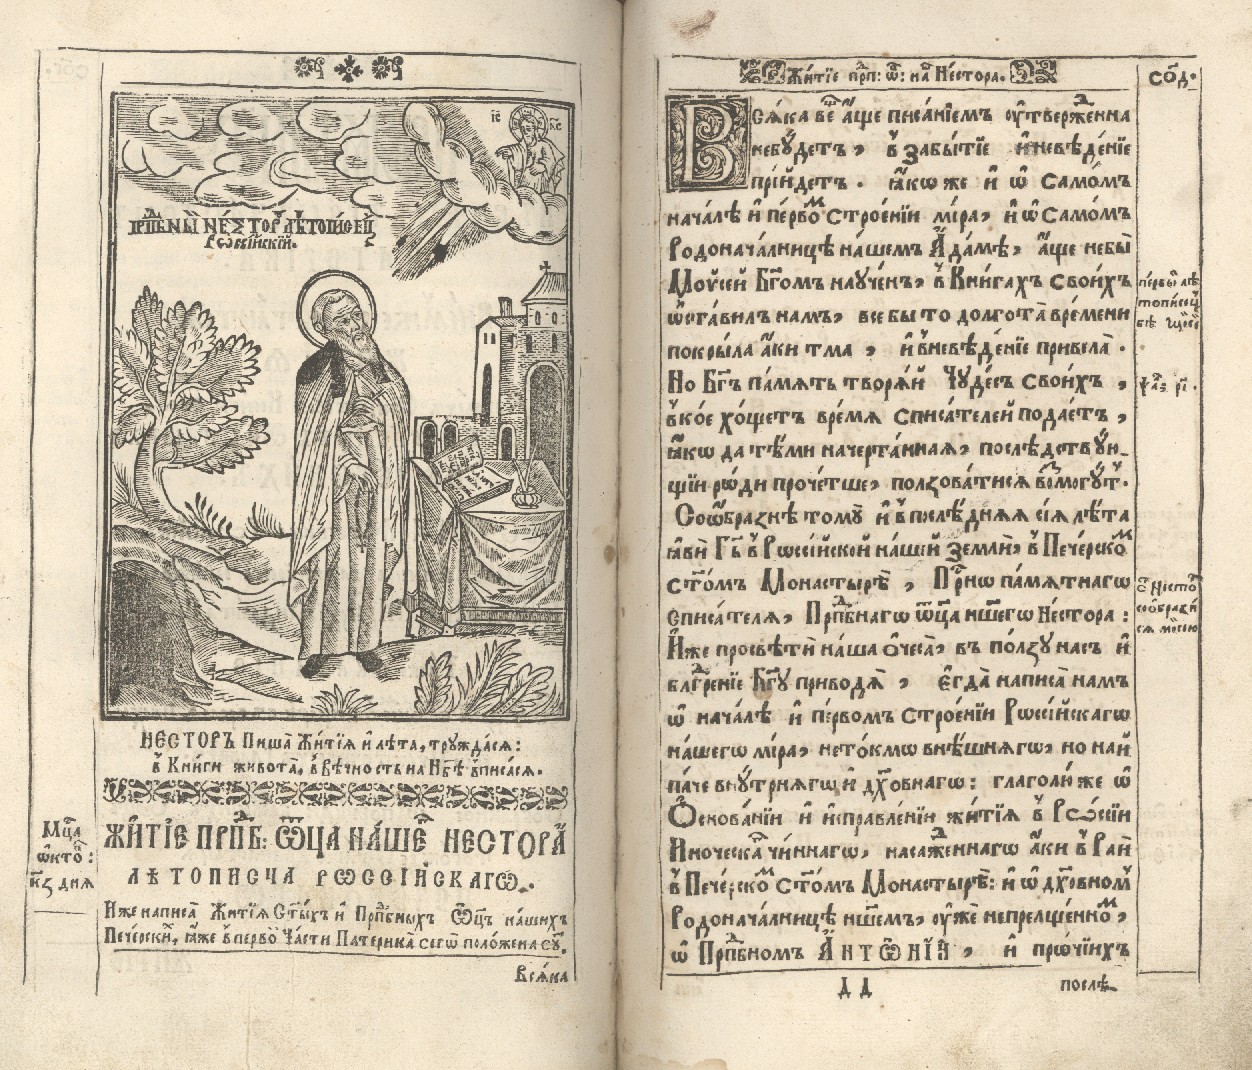 І҃С Х҃С
ПРПⷣБНЫЙ НЕ́СТОРЪ ЛѢТОПИ́СЕЦЪ
Рѡссі́йскїй.
НЕСТОРЪ Пиша̀ Жи́тїѧ и҆ лѣ́та, трꙋжда́сѧ:
в̾ Кни́ги живота̀, в̾ вѣ́чность на Нб҃ѣ в̾писа́сѧ.
Мцⷭ҇а
ѡ҆ктоⷡ҇:
к҃з днѧ
ЖИ́ТЇЕ ПРПⷣБ: Ѿца̀ НА́ШЕГѠ НЕСТОРА
ЛѢТОПИСЦА РѠССІ́ЙСКАГѠ.
И҆́же написа̀ Жи́тїѧ Ст҃ы́хъ и҆ Прпⷣбныхъ Ѿц҃ъ на́шихъ
Пече́рскиⷯ, ꙗ҆́же в̾ пе́рвоⷨ Ча́сти Патерика̀ сегѡ̀ поло́жена сꙋ́ⷮ.
Всѧ́ка
Жи́тїе прпⷣ: ѿ: нш҃: Не́стора.
со҃д.
ВСѦ́ка ве́щь а҆́ще писа́нїемъ ᲂу҆твержⷣенна
не бꙋ́детъ, в̾ забы́тїе и҆ невѣ́дѣнїе
прїи́детъ. ꙗ҆́коже и҆ ѡ҆ само́мъ
нача́лѣ и҆ пе́рвоⷨ строе́нїи мі́ра, и҆ ѡ҆ само́мъ
Родонача́лницѣ на́шемъ А҆да́мѣ, а҆́ще не бы̀
Мѡѷсе́й Бг҃омъ наꙋче́нъ, в̾ Кни́гахъ свои́хъ
ѡ҆ста́вилъ на́мъ, все бы то долгота̀ вре́мени
покры́ла а҆́ки тма, и҆ в̾ невѣ́дѣнїе привела̀.
Но Бг҃ъ па́мѧть творѧ́й Чꙋде́съ свои́хъ,
в̾ ко́е хо́щетъ вре́мѧ списа́телей подае́тъ,
ꙗ҆́кѡ да тѣ́ми начерта́ннаѧ, послѣ́дствꙋю-
щїи ро́ди проче́тше, ползова́тисѧ возмо́гꙋт.
Соѡбра́знѣ томꙋ̀ и҆ в̾ послѣ́днѧѧ сїѧ̀ лѣ́та
ꙗ҆вѝ Гⷭ҇ь в̾ Рѡссі́йской на́шей земли̑, в̾ Пече́рскоⷨ
ст҃о́мъ Монастырѣ̀, Прⷭ҇нѡпа́мѧтнагѡ
списа́телѧ, Прпⷣбнагѡ ѿца̀ на́шегѡ Не́стора:
И҆́же просвѣтѝ на́ша ѻ҆́чеса, въ по́лзꙋ на́съ и҆
благⷣре́нїе Бг҃ꙋ приводѧ̀, Є҆гда̀ написа̀ на́мъ
ѡ҆ нача́лѣ и҆ пе́рвомъ строе́нїи Рѡссі́йскагѡ
на́шегѡ мі́ра, не то́кмѡ внѣ́шнѧгѡ, но наи̑
па́че внꙋ́трнѧгѡ и҆ дх҃о́внагѡ: глаго́лю же ѡ҆
Ѻ҆снова́нїи и҆ и҆справле́нїи житїѧ̀ в̾ Рѡссі́и
И҆́ноческа чи́ннагѡ, насажⷣеннагѡ а҆́ки в̾ Раѝ
в̾ Пече́рскоⷨ ст҃о́мъ Монастырѣ̀: и҆ ѡ҆ дх҃о́вномъ
Родонача́лницѣ нш҃емъ, ᲂу҆жѐ непрелще́нноⷨ,
ѡ҆ Прпⷣбномъ А҆НТѠ́НІИ, и҆ про́чїихъ
пе́рвы лѣ
топи́сец
ѱа҃л. р҃і.
с̾ Несто
сооⷠбрази
сѧ Мѡсею
Д Д
послѣ